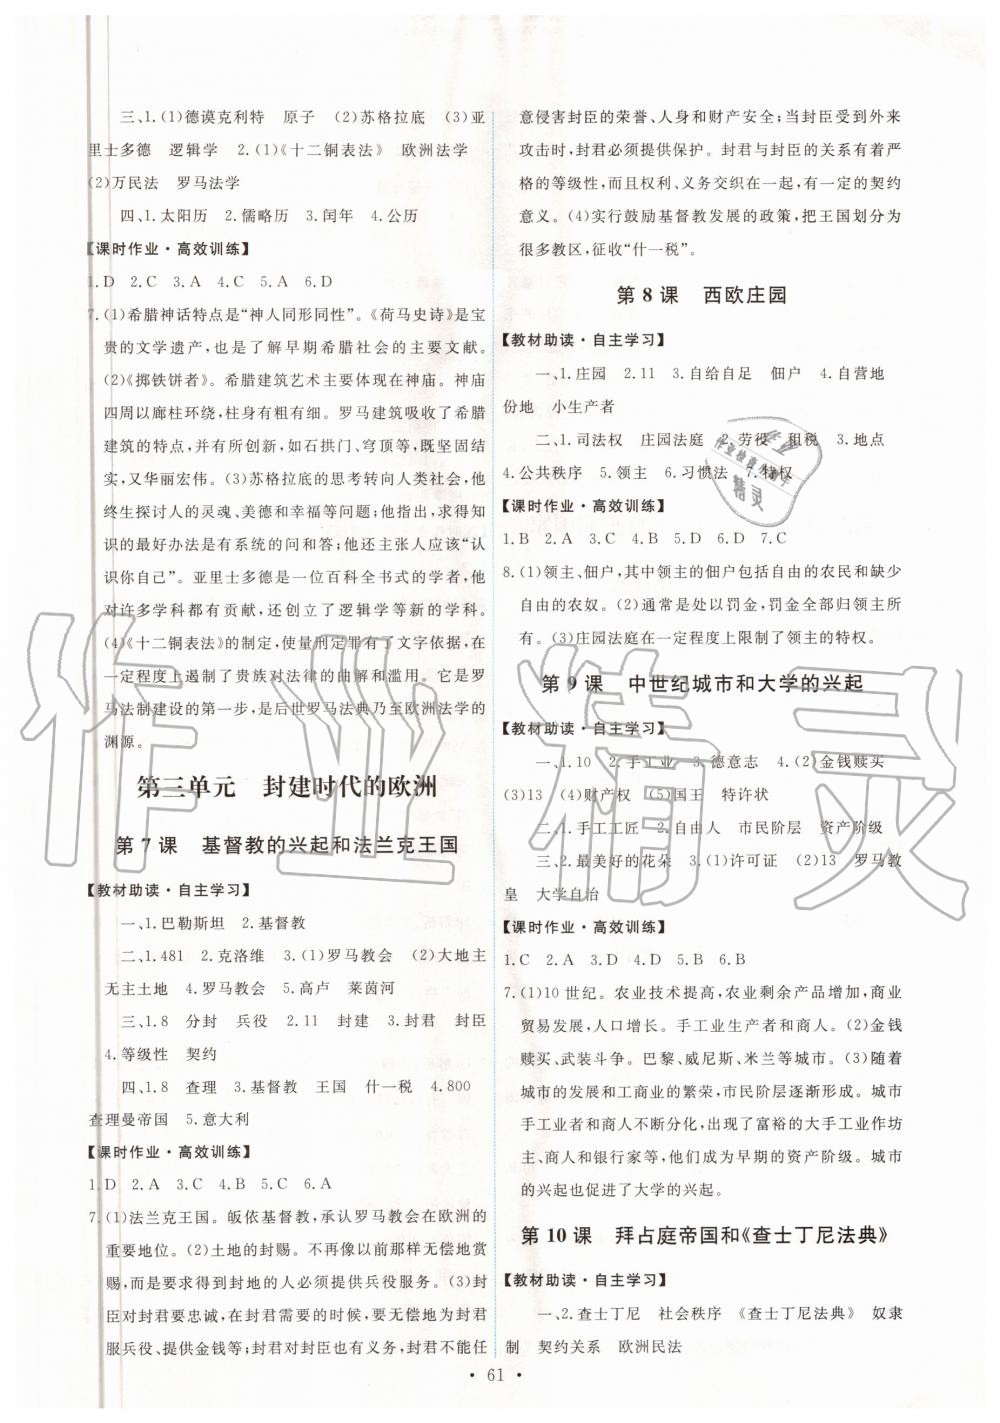 三、1.(1)德谟克利特　原子　(2)苏格拉底　(3)亚
里士多德　逻辑学　2.(1)《十二铜表法》　欧洲法学
(2)万民法　罗马法学
四、1.太阳历　2.儒略历　3.闰年　4.公历
【课时作业·高效训练】
1.D　2.C　3.A　4.C　5.A　6.D
7.(1)希腊神话特点是“神人同形同性”。《荷马史诗》是宝
贵的文学遗产，也是了解早期希腊社会的主要文献。
(2)《掷铁饼者》。希腊建筑艺术主要体现在神庙。神庙
四周以廊柱环绕，柱身有粗有细。罗马建筑吸收了希腊
建筑的特点，并有所创新，如石拱门、穹顶等，既坚固结
实，又华丽宏伟。(3)苏格拉底的思考转向人类社会，他
终生探讨人的灵魂、美德和幸福等问题；他指出，求得知
识的最好办法是有系统的问和答；他还主张人应该“认
识你自己”。亚里士多德是一位百科全书式的学者，他
对许多学科都有贡献，还创立了逻辑学等新的学科。
(4)《十二铜表法》的制定，使量刑定罪有了文字依据，在
一定程度上遏制了贵族对法律的曲解和滥用。它是罗
马法制建设的第一步，是后世罗马法典乃至欧洲法学的
渊源。
第三单元　封建时代的欧洲
第 7 课　基督教的兴起和法兰克王国
【教材助读·自主学习】
一、1.巴勒斯坦　2.基督教
二、1.481　2.克洛维　3.(1)罗马教会　(2)大地主
无主土地　4.罗马教会　5.高卢　莱茵河
三、1.8　分封　兵役　2.11　封建　3.封君　封臣
4.等级性　契约
四、1.8　查理　3.基督教　王国　什一税　4.800
查理曼帝国　5.意大利
【课时作业·高效训练】
1.D　2.A　3.C　4.B　5.C　6.A
7.(1)法兰克王国。皈依基督教，承认罗马教会在欧洲的
重要地位。(2)土地的封赐。不再像以前那样无偿地赏
赐，而是要求得到封地的人必须提供兵役服务。(3)封
臣对封君要忠诚，在封君需要的时候，要无偿地为封君
服兵役、提供金钱等；封君对封臣也有义务，封君不能任
意侵害封臣的荣誉、人身和财产安全；当封臣受到外来
攻击时，封君必须提供保护。封君与封臣的关系有着严
格的等级性，而且权利、义务交织在一起，有一定的契约
意义。(4)实行鼓励基督教发展的政策，把王国划分为
很多教区，征收“什一税”。
第 8 课　西欧庄园
【教材助读·自主学习】
一、1.庄园　2.11　3.自给自足　佃户　4.自营地
份地　小生产者
二、1.司法权　庄园法庭　2.劳役　租税　3.地点
4.公共秩序　5.领主　6.习惯法　7.特权
【课时作业·高效训练】
1.B　2.A　3.C　4.B　5.D　6.D　7.C
8.(1)领主、佃户，其中领主的佃户包括自由的农民和缺少
自由的农奴。(2)通常是处以罚金，罚金全部归领主所
有。(3)庄园法庭在一定程度上限制了领主的特权。
第 9 课　中世纪城市和大学的兴起
【教材助读·自主学习】
一、1.10　2.手工业　3.德意志　4.(2)金钱赎买
(3)13　(4)财产权　(5)国王　特许状
二、1.手工工匠　2.自由人　市民阶层　资产阶级
三、2.最美好的花朵　3.(1)许可证　(2)13　罗马教
皇　大学自治
【课时作业·高效训练】
1.C　2.A　3.D　4.C　5.D　6.B　7.B
7.(1)10 世纪。农业技术提高，农业剩余产品增加，商业
贸易发展，人口增长。手工业生产者和商人。(2)金钱
赎买、武装斗争。巴黎、威尼斯、米兰等城市。(3)随着
城市的发展和工商业的繁荣，市民阶层逐渐形成。城市
手工业者和商人不断分化，出现了富裕的大手工业作坊
主、商人和银行家等，他们成为早期的资产阶级。城市
的兴起也促进了大学的兴起。
第 10 课　拜占庭帝国和《查士丁尼法典》
【教材助读·自主学习】
一、2.查士丁尼　社会秩序　《查士丁尼法典》　奴隶
制　契约关系　欧洲民法
· 61 ·
作业精灵